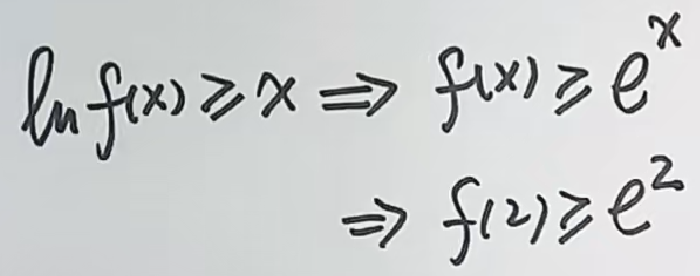 ln f(x) ⩾ x ⇒ f(x) ⩾ eˣ
⇒ f(2) ⩾ e²